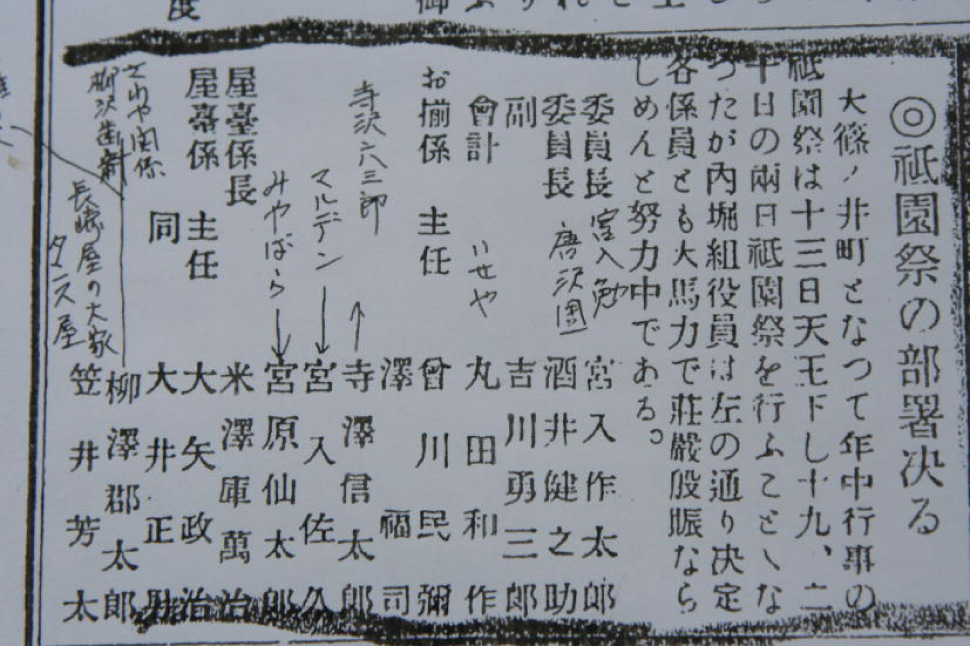 ◎祇園祭の部署決る
大篠ノ井町となつて年中行事の
祇園祭は十三日天王下し十九、二
十日の兩日祇園祭を行ふことゝな
つたが内堀組役員は左の通り決定
各係員とも大馬力で莊嚴殷賑なら
しめんと努力中である。
委員長 宮入作太郎
宮入勉
委員長 酒井健之助
唐沢
副 吉川勇三郎
會計 丸田和作
いせや
お揃係 主任 曾川民彌
澤福司
寺澤信太郎
寺沢六三郎
宮入佐久
マルデン
宮原仙太郎
みやばら
屋臺係長 米澤庫萬治
屋臺係 主任 大矢政治
同 大井正
さわや関係
柳澤郡太郎
柳沢
笠井芳太
長崎屋の大家
タス屋